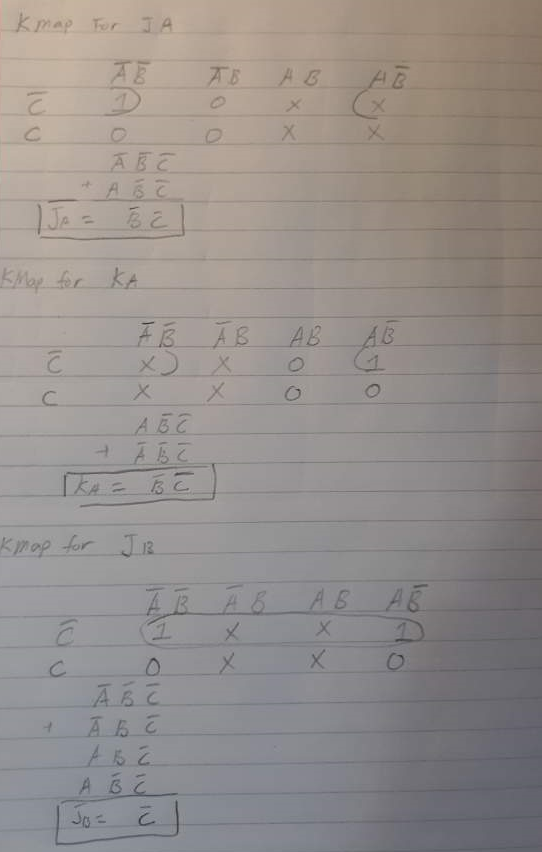 Kmap For JA
A̅ B̅ A̅ B A B A B̅
C̅ 1 0 x x
C 0 0 x x
A̅ B̅ C̅
+ A B̅ C̅
JA = B̅ C̅
KMap for KA
A̅ B̅ A̅ B AB A B̅
C̅ x x 0 1
C x x 0 0
A B̅ C̅
+ A̅ B̅ C̅
KA = B̅ C̅
Kmap for JB
A̅ B̅ A̅ B A B A B̅
C̅ 1 x x 1
C 0 x x 0
A̅ B̅ C̅
+ A̅ B C̅
A B C̅
A B̅ C̅
JB = C̅